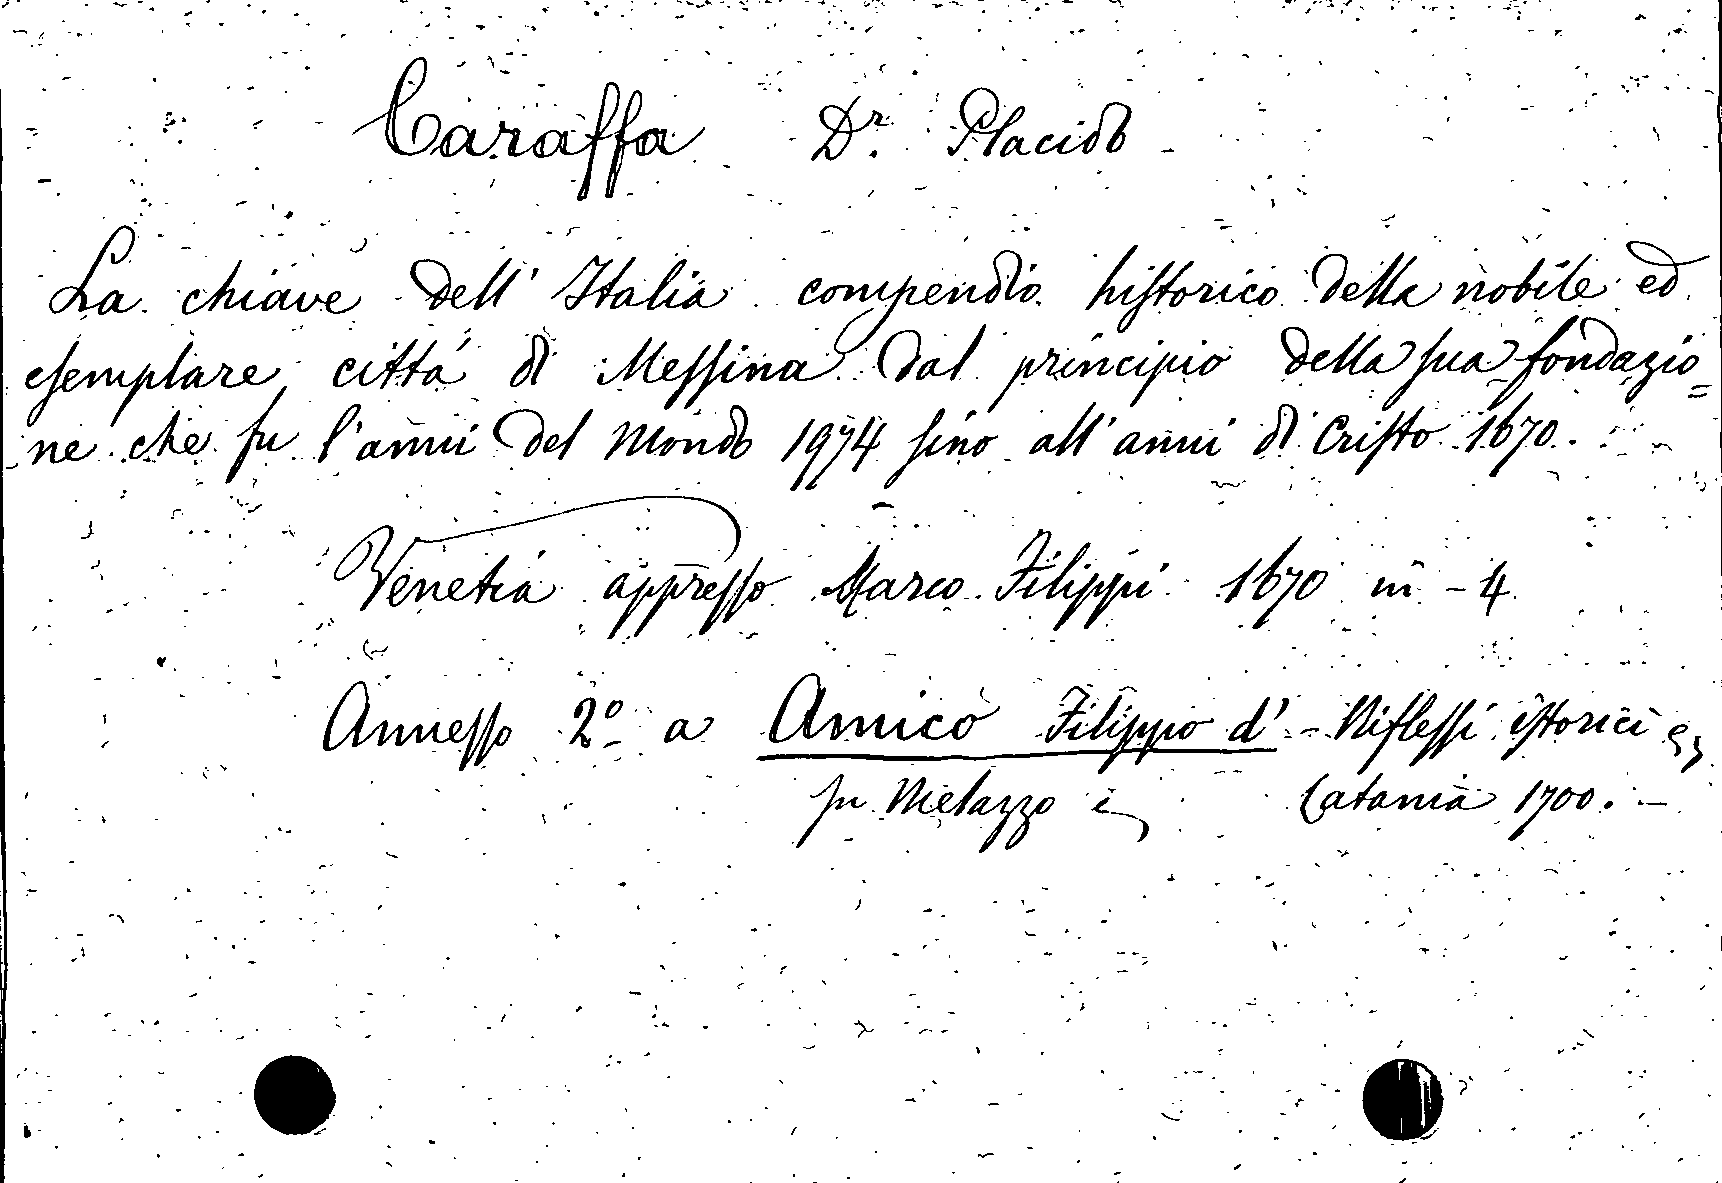 Caraffa Dr. Placido
La chiave dell' Italia compendio historico della nobile ed
esemplare cittá di Messina dal principio della sua fondazio=
ne che fu l'anni del Mondo 1974 sino all' anni di Cristo 1670.
Venetia appresso Marco Filippi 1670 in - 4
Annesso 2º a Amico Filippo d' - Riflessi istorici
Melazzo Catania 1700. -